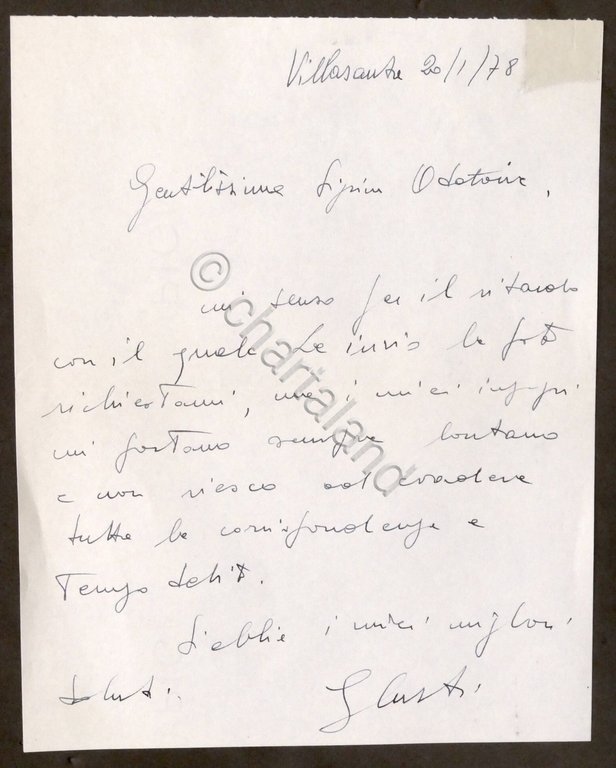 Villasanta 20/1/78
Gentilissima
mi scuso per il ritardo
con il quale Le invio le foto
richiestami, ma i miei impegni
mi portano sempre lontano
e non riesco ad evadere
tutta la corrispondenza a
tempo debito.
Si abbia i miei migliori
saluti. Giusti
© chartaland